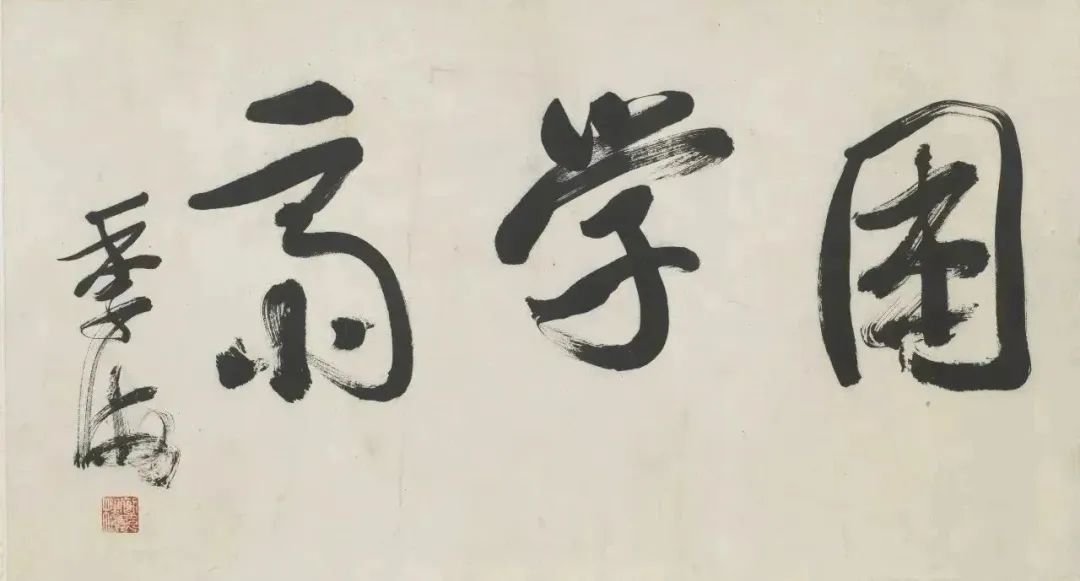 困学斋
季